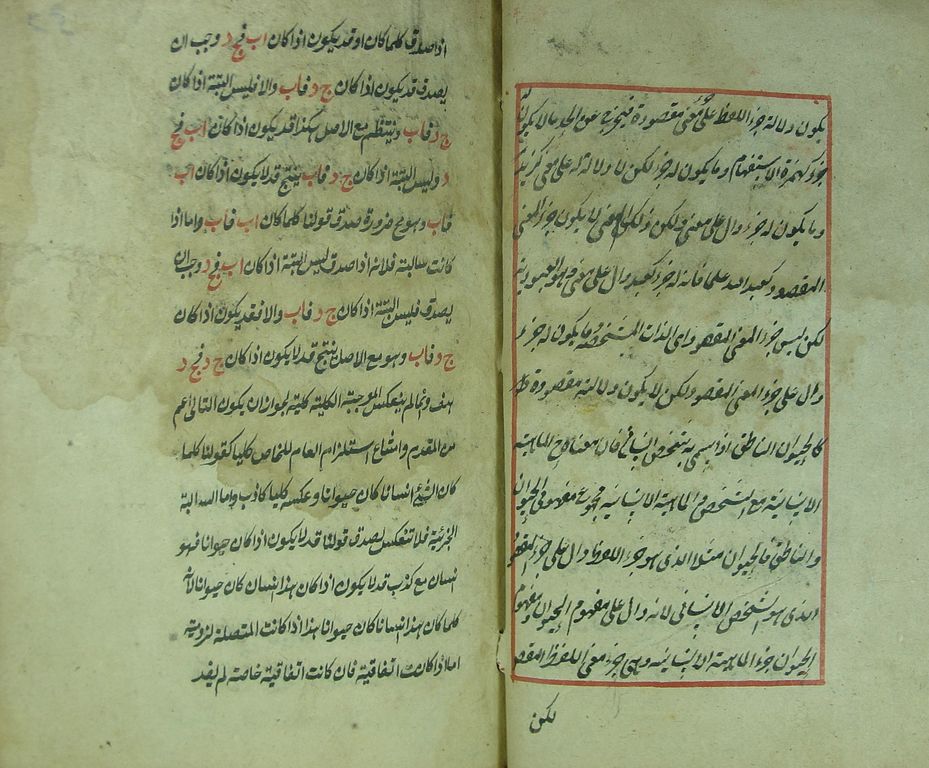 يكون دلالة جزء اللفظ على معنى مقصودة فيخرج عن الحد ما لا يكون له
جزء كهمزة الاستفهام وما يكون له جزء لكن لا دلالة له على معنى كزيد
وما يكون له جزء دال على معنى ولكن ذلك المعنى لا يكون جزء المعنى
المقصود كعبد الله علما فانه له جزء كعبد دال على معنى هو العبودية
لكن ليس جزء المعنى المقصود اى الذات المشخصة وما يكون له جزء
دال على جزء المعنى المقصود ولكن لا يكون دلالة مقصودة
كالحيوان الناطق اذا سمى به شخص انسانى فان معناه ح الماهية
الانسانية مع التشخص والماهية الانسانية مجموع مفهومى الحيوان
والناطق فالحيوان مثلا الذى هو جزء اللفظ دال على جزء المقصود
الذى هو الشخص الانسانى لانه دال على مفهوم الحيوان ومفهوم
الحيوان جزء الماهية الانسانية وهى جزء معنى اللفظ المقصود
لكن
اذا صدق كلما كان او قد يكون اذا كان اب فج د وجب ان
يصدق قد يكون اذا كان ج د فاب والا فليس البتة اذا كان
ج د فاب وينتظم مع الاصل هكذا قد يكون اذا كان اب فج
د وليس البتة اذا كان ج د فاب ينتج قد لا يكون اذا كان اب
فاب وهو مح ضرورة صدق قولنا كلما كان اب فاب واما اذا
كانت سالبة فلانه اذا صدق ليس البتة اذا كان اب فج د وجب ان
يصدق فليس البتة اذا كان ج د فاب والا فقد يكون اذا كان
ج د فاب وهو مع الاصل ينتج قد لا يكون اذا كان ج د فج د
هف وانما لم ينعكس الموجبة الكلية كلية لجواز ان يكون التالى اعم
من المقدم وامتناع استلزام العام للخاص كليا كقولنا كلما
كان الشئ انسانا كان حيوانا وعكسه كليا كاذب واما السالبة
الجزئية فلا تنعكس لصدق قولنا قد لا يكون اذا كان حيوانا فهو
انسان مع كذب قد لا يكون اذا كان هذا انسان كان حيوانا لانه
كلما كان هذا انسانا كان حيوانا هذا اذا كانت المتصلة لزومية
اما اذا كانت اتفاقية فان كانت اتفاقية خاصة لم يفد